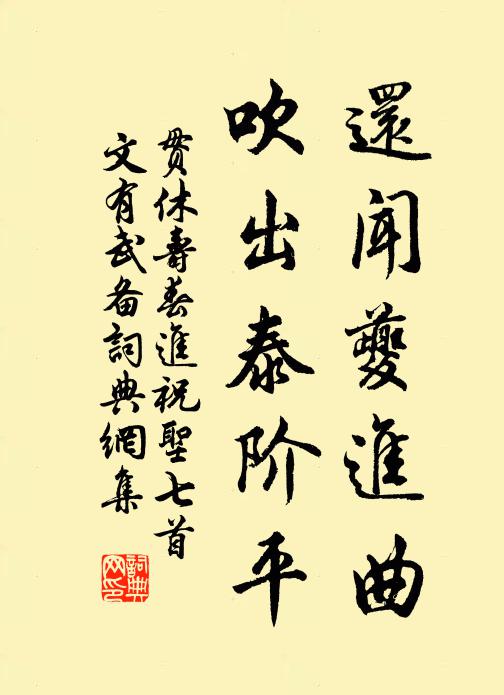 還聞夔進曲
吹出泰阶平
贯休壽春進祝聖七首
文有武备詞典網集
詞典网印